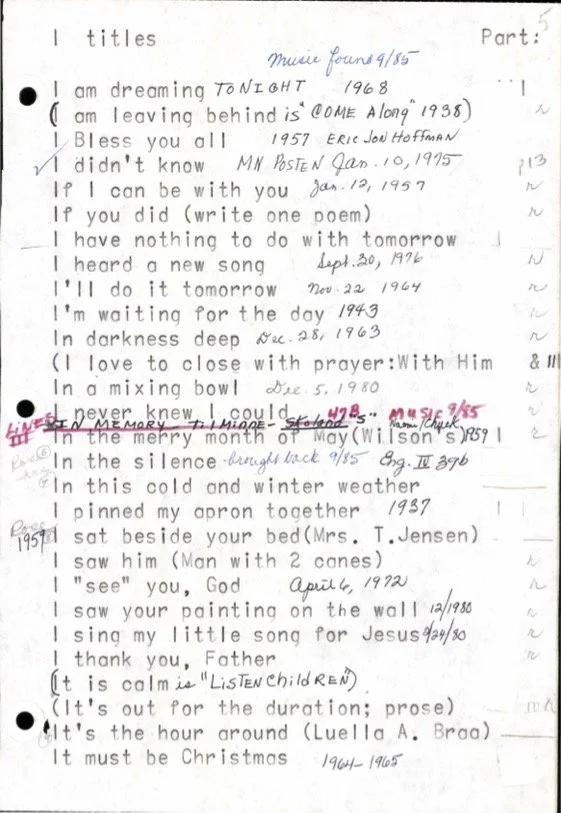 5
I titles Part:
Music found 9/85
I am dreaming TONIGHT 1968 1
(I am leaving behind is "COME Along" 1938) n
I Bless you all 1957 ERIC JON HOFFMAN
I didn't know MN POSTEN Jan. 10, 1975 p13
If I can be with you Jan. 12, 1957 n
If you did (write one poem) n
I have nothing to do with tomorrow
I heard a new song Sept. 30, 1976 N
I'll do it tomorrow Nov. 22 1964 n
I'm waiting for the day 1943 n
In darkness deep Dec. 28, 1963 n
(I love to close with prayer:With Him & III
In a mixing bowl Dec 5, 1980 n
I never knew I could 47B MUSIC 9/85 n
LINES III IN MEMORY Til Minne- Stoland "S" Naomi/Chuck
In the merry month of May(Wilson's) 1959 1 n
In the silence brought back 9/85 Eng. IV 39b
In this cold and winter weather
I pinned my apron together 1937
1959 I sat beside your bed(Mrs. T.Jensen)
I saw him (Man with 2 canes) n
I "see" you, God April 6, 1972 n
I saw your painting on the wall 12/1980 n
I sing my little song for Jesus 9/24/80 n
I thank you, Father n
(It is calm is "LiSTEN ChildREN")
(It's out for the duration; prose)
It's the hour around (Luella A. Braa)
It must be Christmas 1964-1965